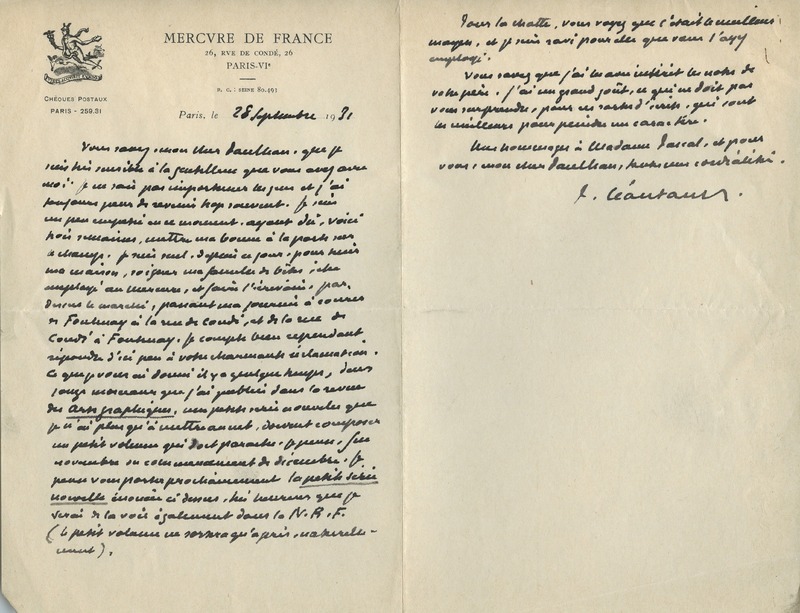 MERCVRE DE FRANCE
26, RVE DE CONDÉ, 26
PARIS-VIᵉ
R. C. : SEINE 80.493
CHÈQUES POSTAUX
PARIS - 259.31
Paris, le 28 Septembre 1931
Vous savez, mon cher Paulhan, que je
suis très sensible à la gentillesse que vous avez avec
moi. Je ne sais pas importuner les gens et j'ai
toujours peur de revenir trop souvent. Je suis
un peu empêtré en ce moment, ayant dû, voici
trois semaines, mettre ma bonne à la porte sur
le champ. Je suis seul, depuis ce jour, pour tenir
ma maison, soigner ma famille de bêtes, être
employé au Mercure, et faire l'écrivain, par
dessus le marché, passant ma journée à courir
de Fontenay à la rue de Condé, et de la rue de
Condé à Fontenay. Je compte bien cependant
répondre d'ici peu à votre charmante réclamation.
Ce que je vous ai donné il y a quelque temps, deux
longs morceaux que j'ai publiés dans la revue
des Arts graphiques, une petite série nouvelle que
je n'ai plus qu'à mettre au net, doivent composer
un petit volume qui doit paraître, je pense, fin
novembre ou commencement de décembre. Je
pense vous porter prochainement la petite série
nouvelle énoncée ci dessus, très heureux que je
serai de la voir également dans la N.R.F.
(Le petit volume ne sortira qu'après, naturelle-
ment).
Pour la chatte, vous voyez que c'était le meilleur
moyen, et je suis ravi pour elle que vous l'ayez
employé.
Vous savez que j'ai lu avec intérêt les notes de
votre père. J'ai un grand goût, ce qui ne doit pas
vous surprendre, pour ces sortes d'écrits, qui sont
les meilleurs pour peindre un caractère.
Mes hommages à Madame Pascal, et pour
vous, mon cher Paulhan, toute ma cordialité.
P. Léautaud.